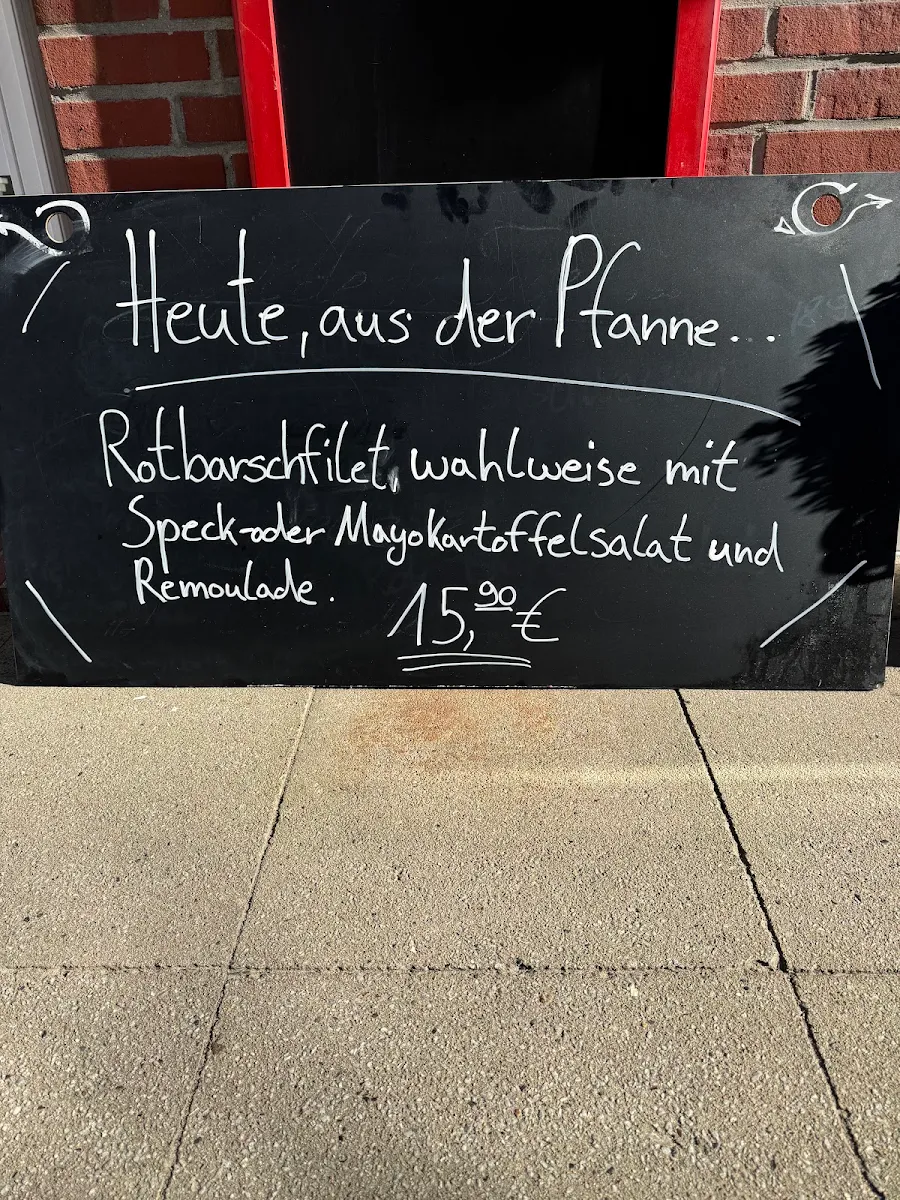 Heute, aus der Pfanne...
Rotbarschfilet, wahlweise mit
Speck-oder Mayokartoffelsalat und
Remoulade.
15,90 €